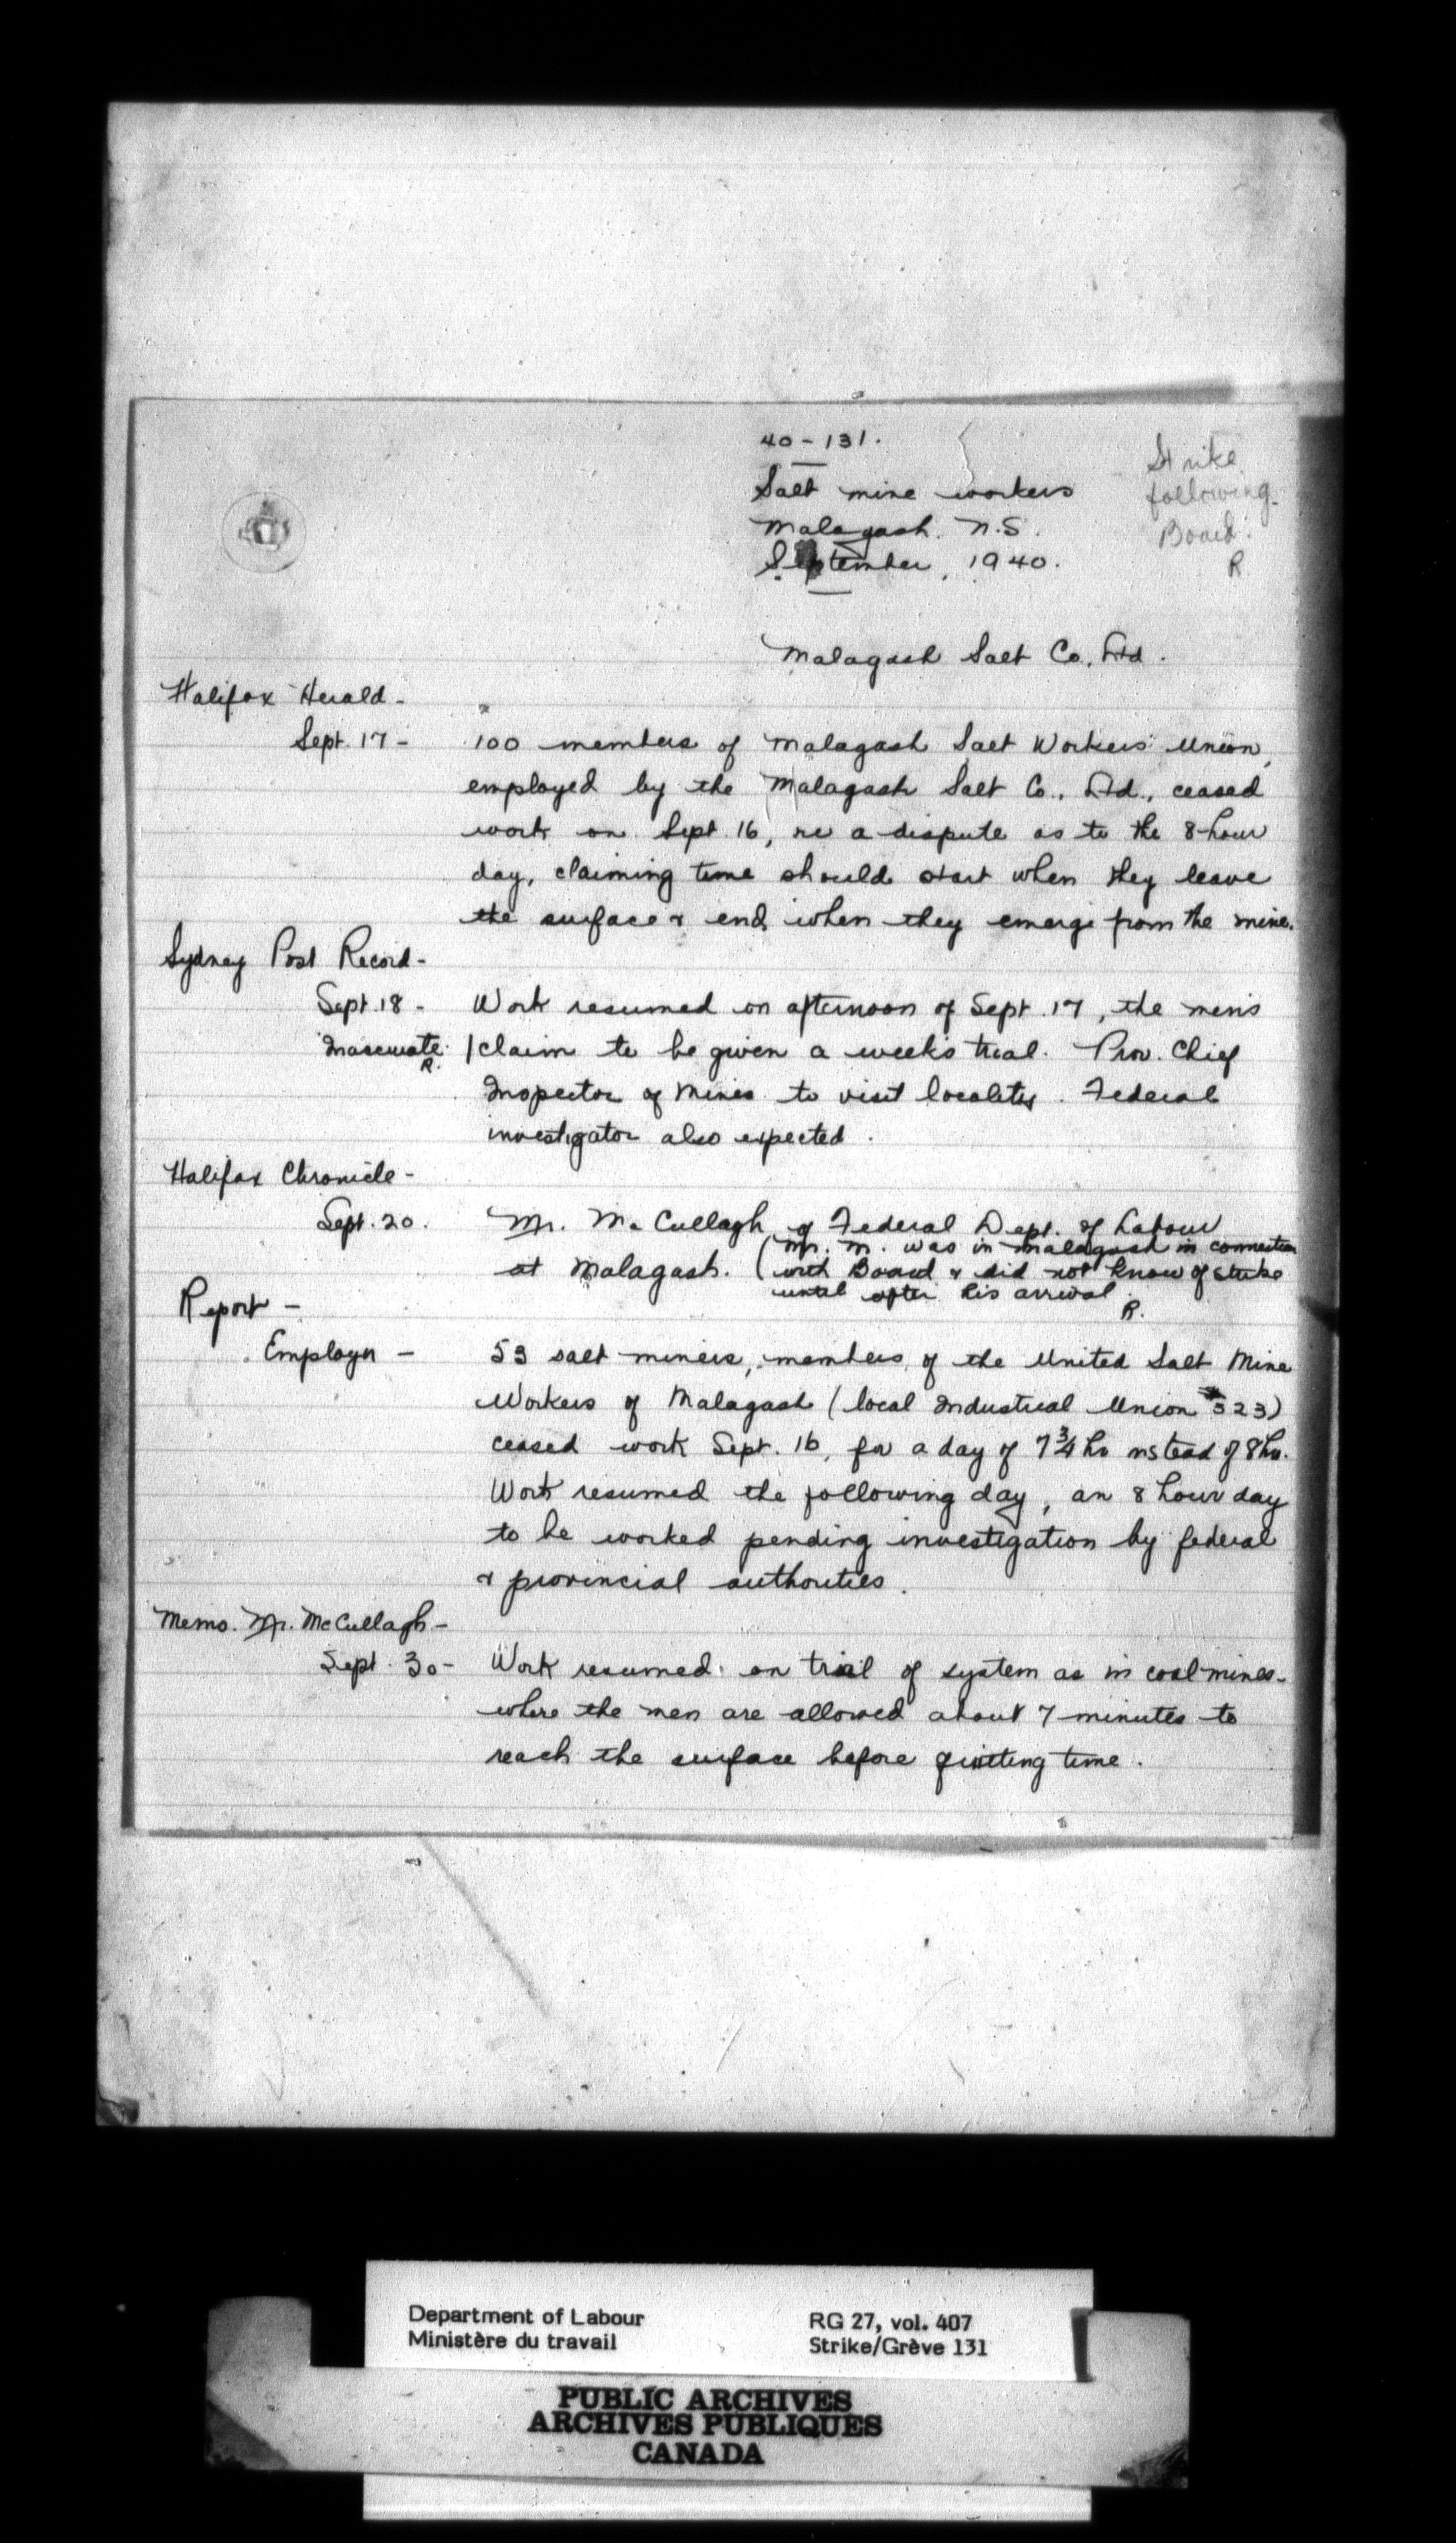 40-131.
Salt mine workers
Malagash. N.S.
September, 1940.
Strike
following
Board.
R
Malagash Salt Co. Ltd.
Halifax Herald -
Sept. 17 - 100 members of Malagash Salt Workers' Union,
employed by the Malagash Salt Co., Ltd., ceased
work on Sept. 16, re a dispute as to the 8-hour
day, claiming time should start when they leave
the surface & end when they emerge from the mine.
Sydney Post Record -
Sept. 18 - Work resumed on afternoon of Sept. 17, the men's
Inaccurate R. / claim to be given a week's trial. Prov. Chief
Inspector of Mines to visit locality. Federal
investigator also expected.
Halifax Chronicle -
Sept. 20. Mr. McCullagh of Federal Dept. of Labour
at Malagash. (Mr. M. was in Malagash in connection
with Board & did not know of strike
until after his arrival.
R.
Report -
Employer - 53 salt miners, members of the United Salt Mine
Workers of Malagash (local Industrial Union #323)
ceased work Sept. 16, for a day of 7 3/4 hr instead of 8 hr.
Work resumed the following day, an 8 hour day
to be worked pending investigation by federal
& provincial authorities.
Memo. Mr. McCullagh -
Sept. 30 - Work resumed on trial of system as in coal mines -
where the men are allowed about 7 minutes to
reach the surface before quitting time.
Department of Labour
Ministère du travail
RG 27, vol. 407
Strike/Grève 131
PUBLIC ARCHIVES
ARCHIVES PUBLIQUES
CANADA